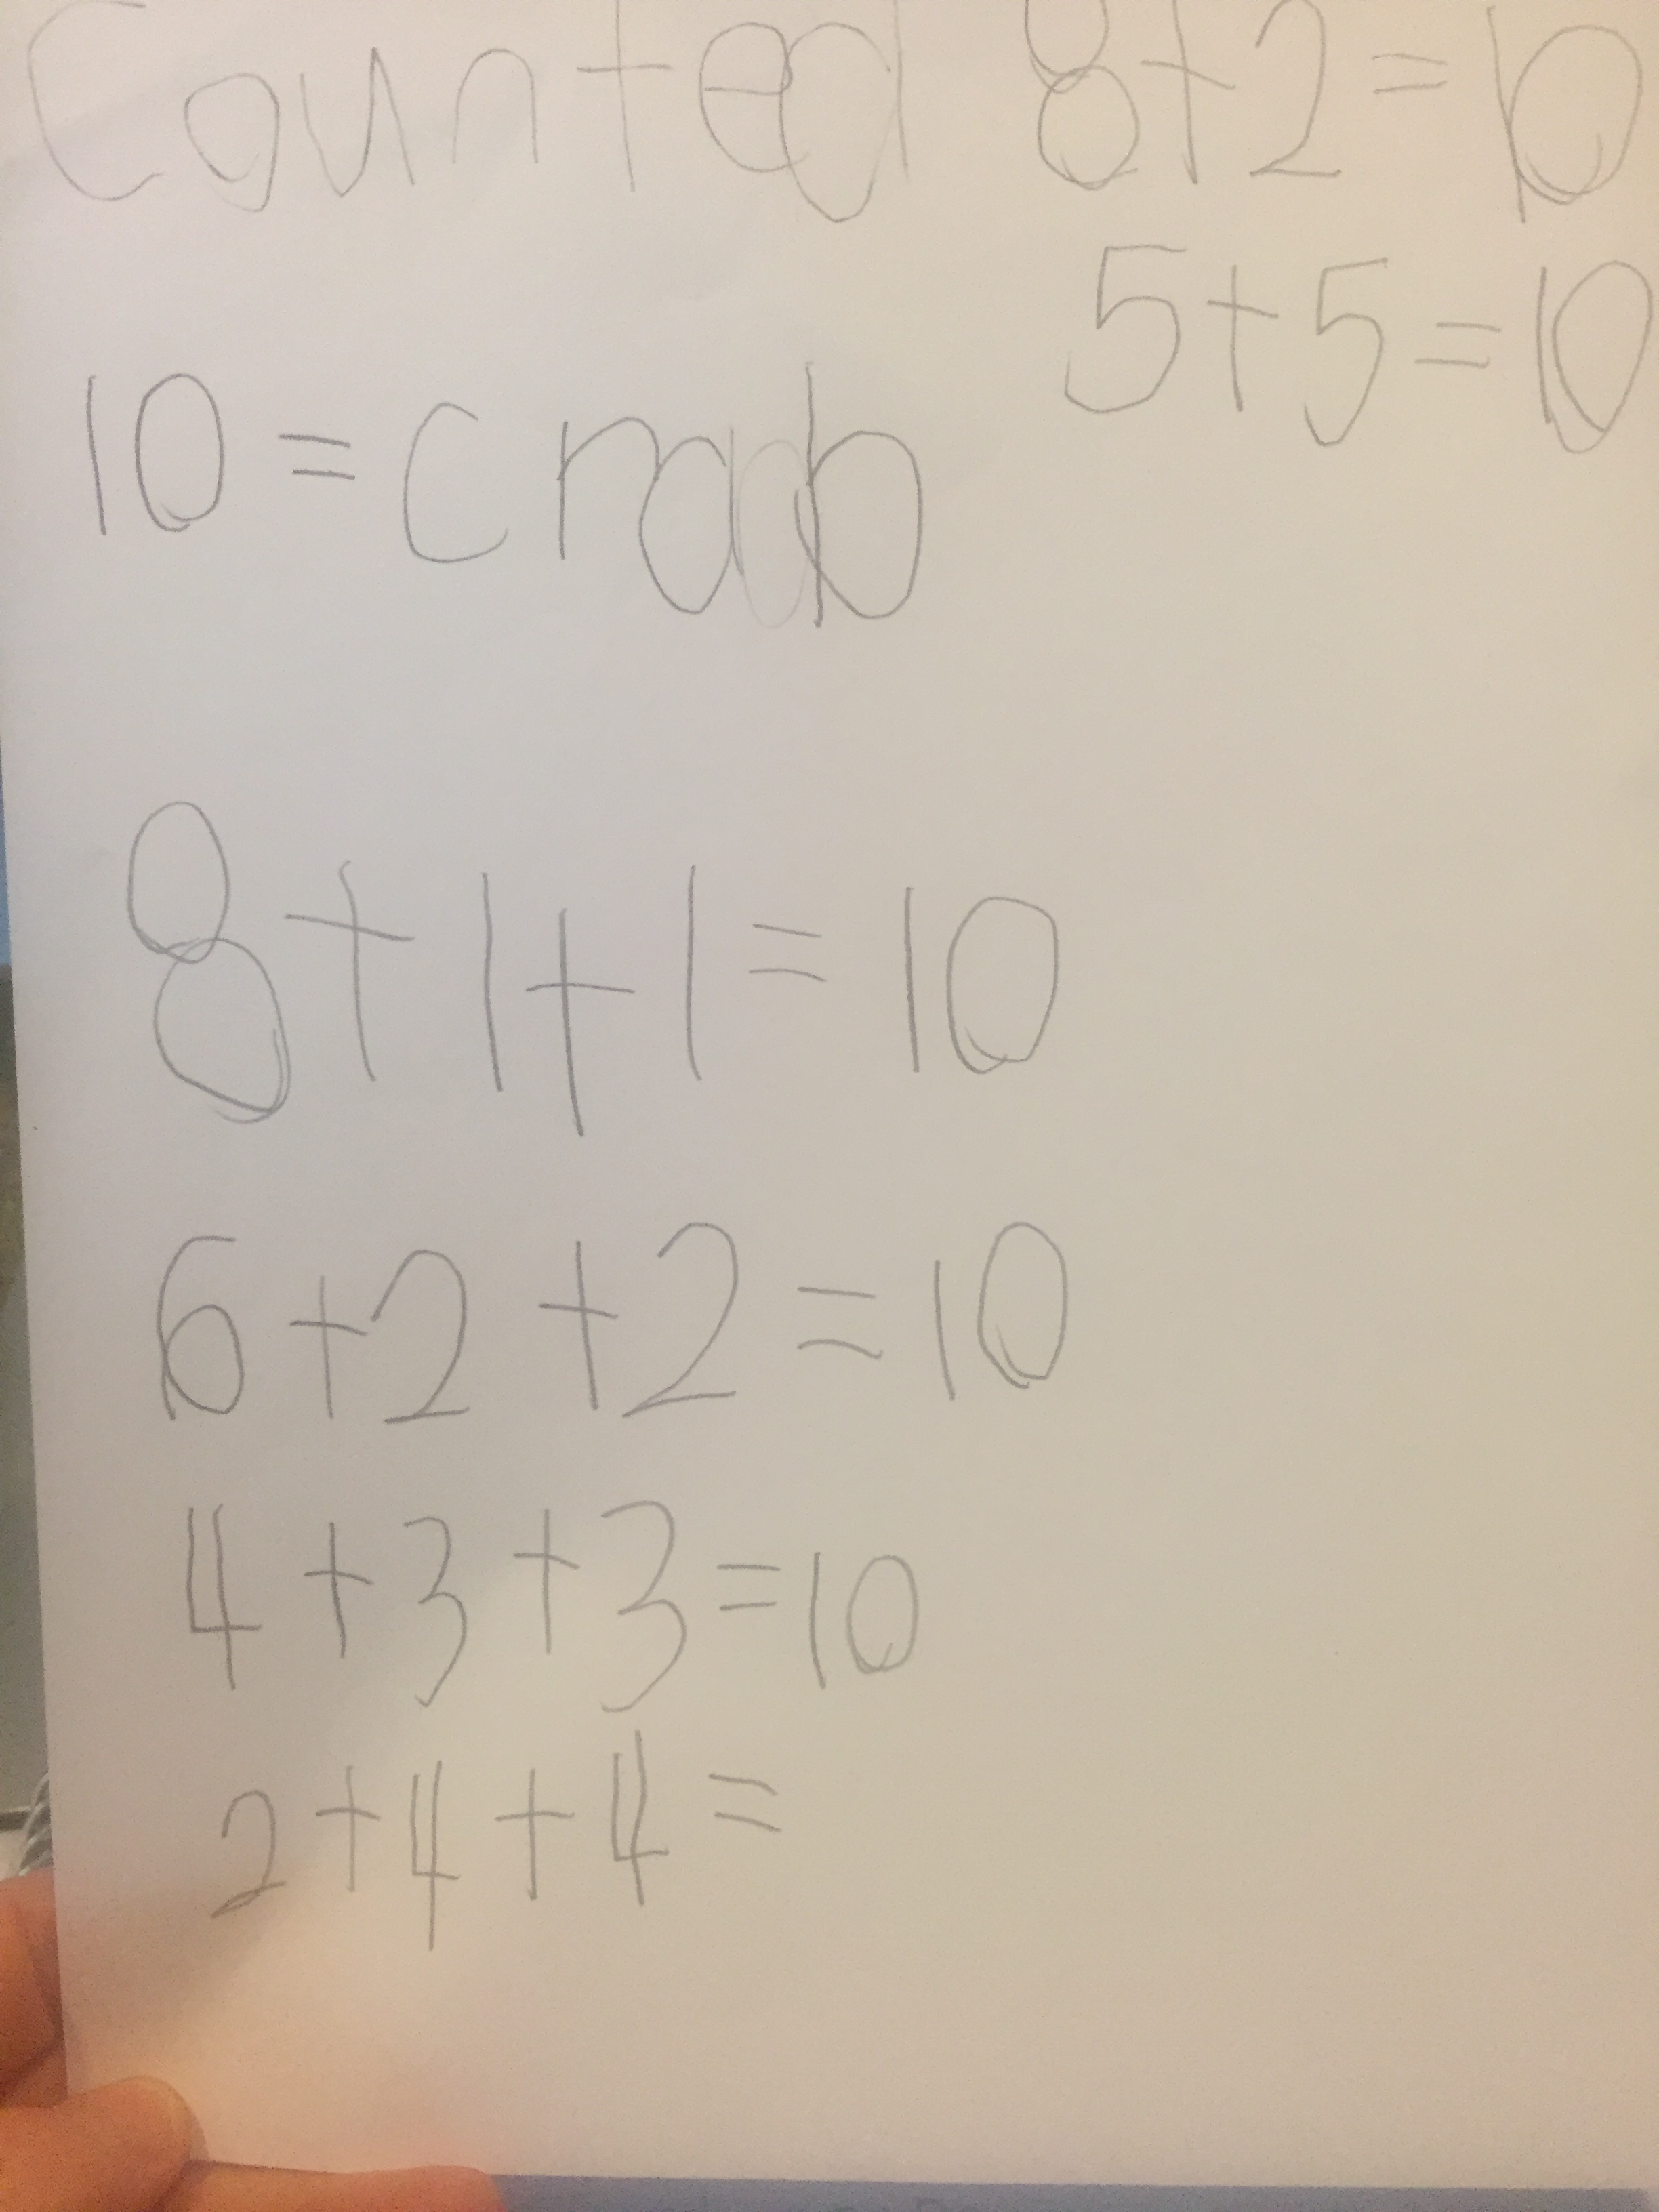 Counted 8+2=10
5+5=10
10=crab
8+1+1=10
6+2+2=10
4+3+3=10
2+4+4=